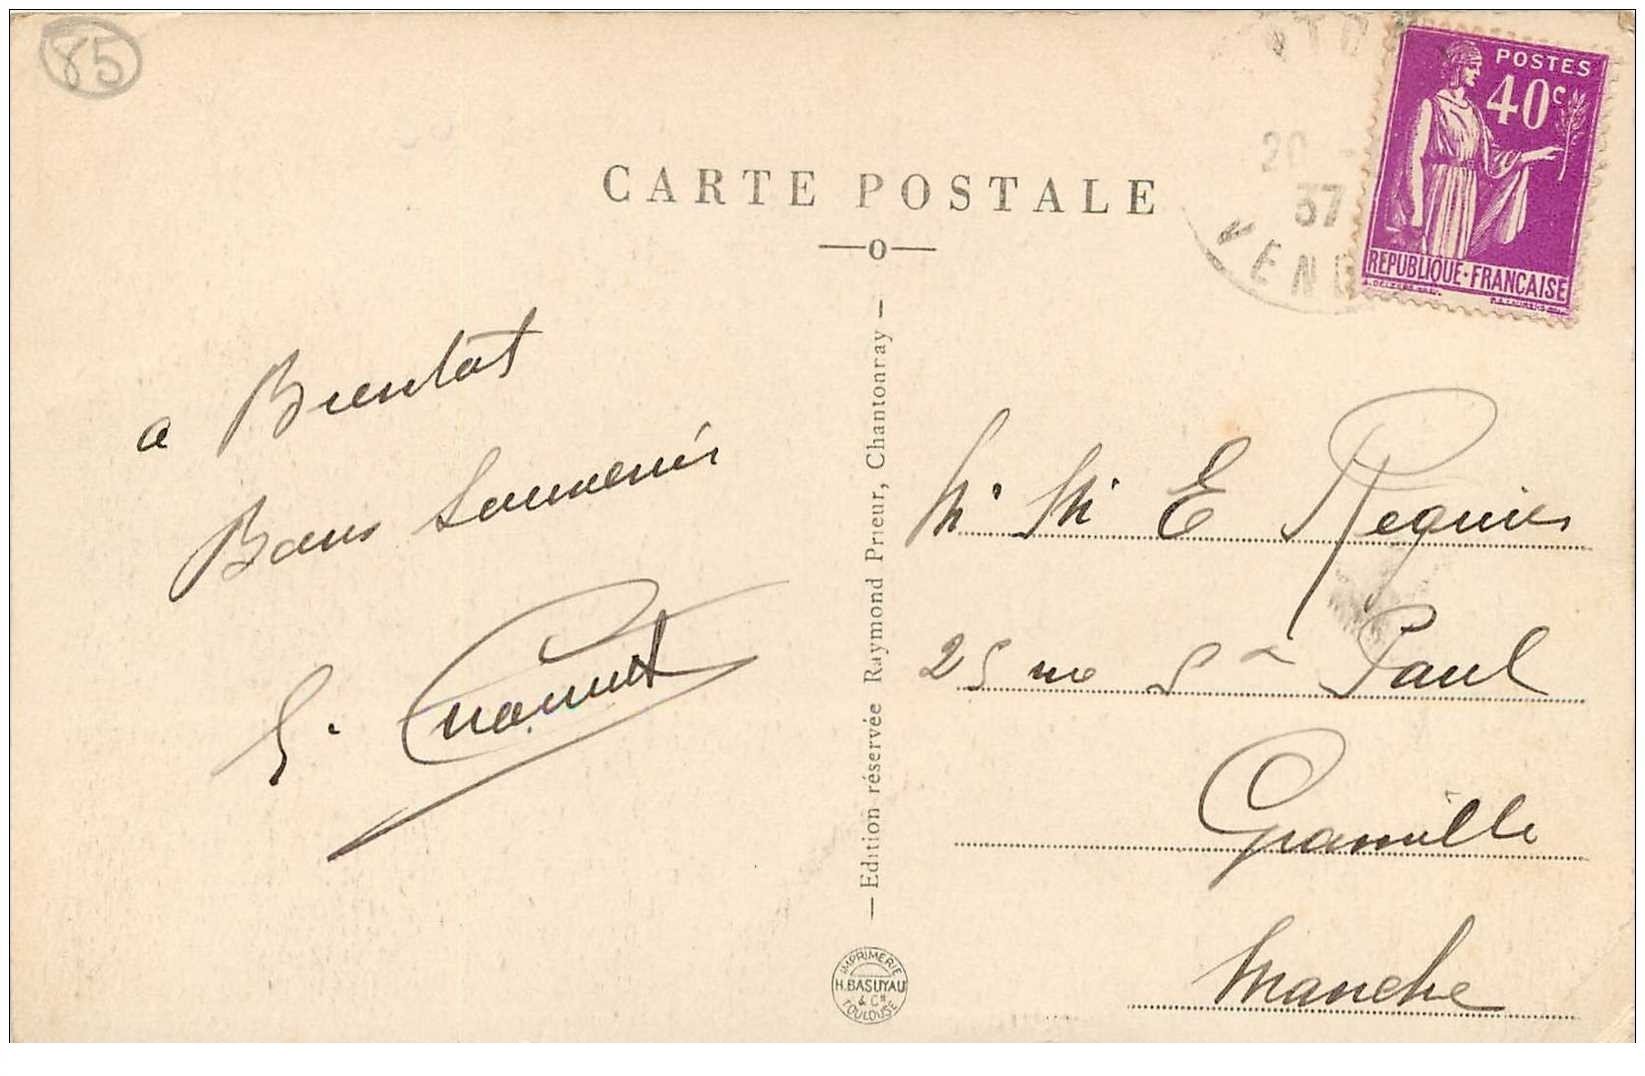 85
CARTE POSTALE
20
37
VEND
POSTES
40c
REPUBLIQUE·FRANCAISE
a Bientot
Bons Souvenirs
— Edition réservée Raymond Prieur, Chantonnay —
E Regnier
25 rue St Paul
Granville
Manche
IMPRIMERIE
H. BASUYAU
& Cie
TOULOUSE